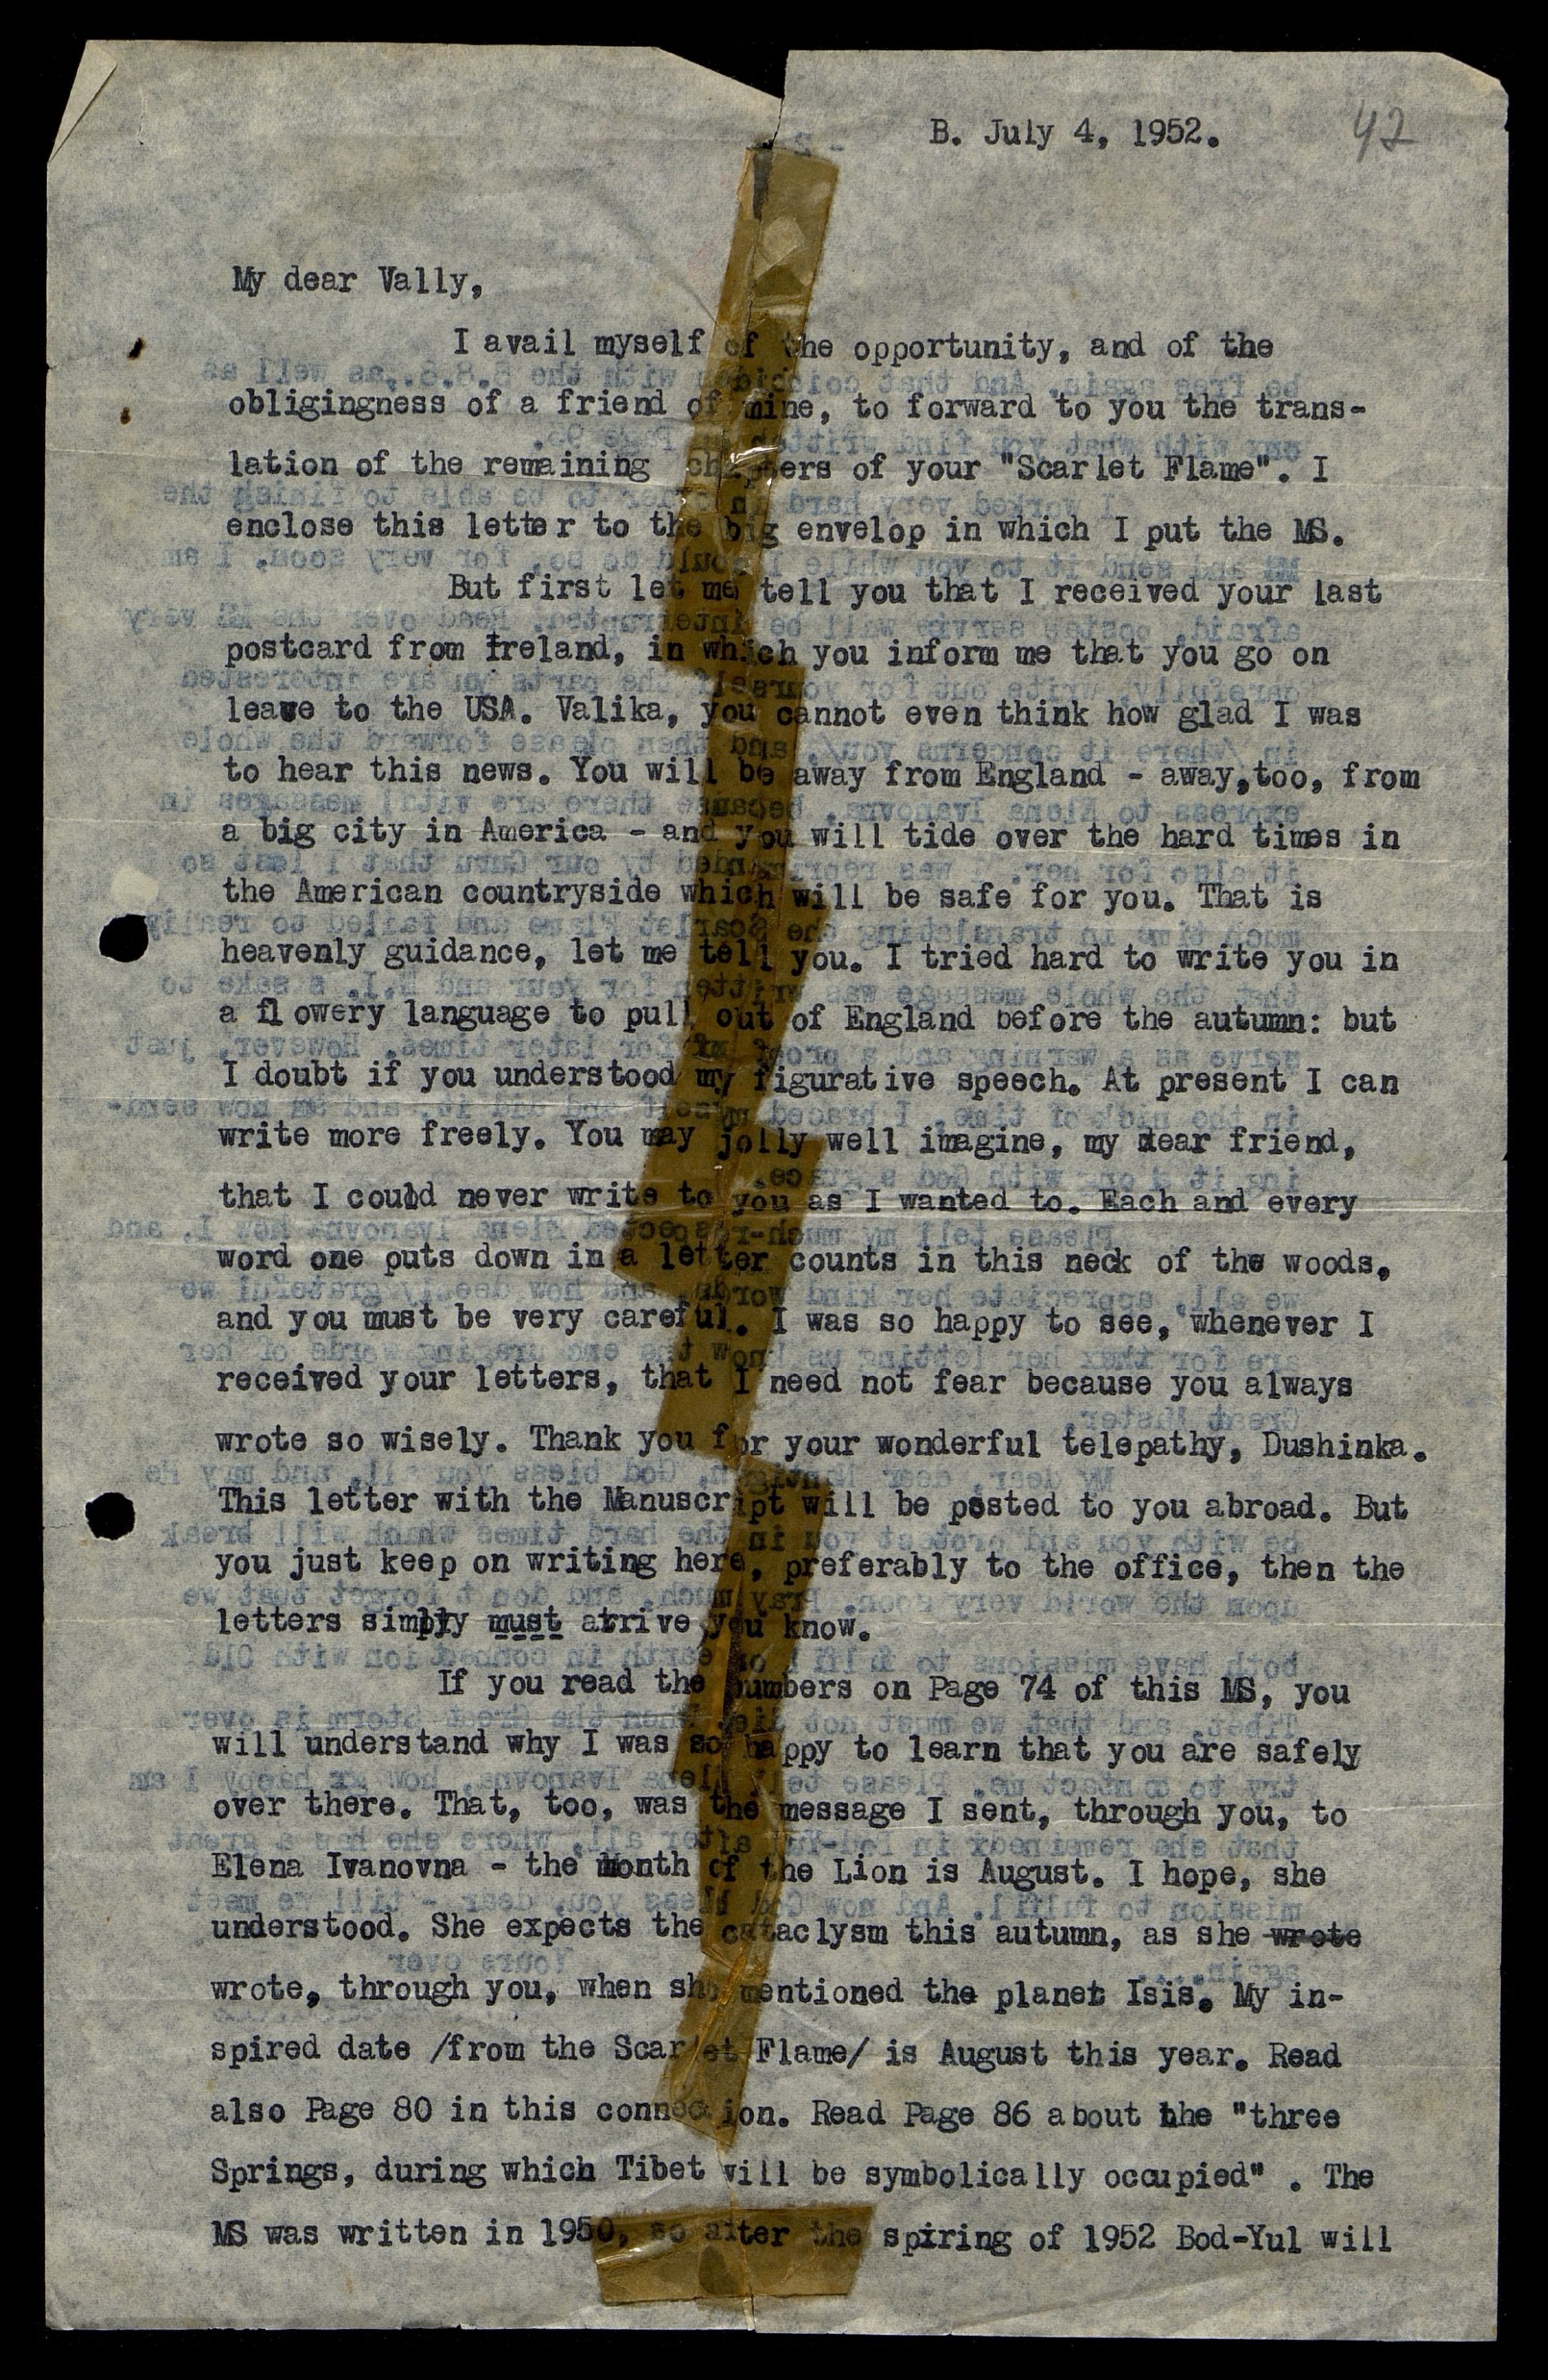 B. July 4, 1952.
42
My dear Vally,
I avail myself of the opportunity, and of the
obligingness of a friend of mine, to forward to you the trans-
lation of the remaining chapters of your "Scarlet Flame". I
enclose this letter to the big envelop in which I put the MS.
But first let me tell you that I received your last
postcard from Ireland, in which you inform me that you go on
leave to the USA. Valika, you cannot even think how glad I was
to hear this news. You will be away from England - away,too, from
a big city in America - and you will tide over the hard times in
the American countryside which will be safe for you. That is
heavenly guidance, let me tell you. I tried hard to write you in
a flowery language to pull out of England before the autumn: but
I doubt if you understood my figurative speech. At present I can
write more freely. You may jolly well imagine, my dear friend,
that I could never write to you as I wanted to. Each and every
word one puts down in a letter counts in this neck of the woods,
and you must be very careful. I was so happy to see, whenever I
received your letters, that I need not fear because you always
wrote so wisely. Thank you for your wonderful telepathy, Dushinka.
This letter with the Manuscript will be posted to you abroad. But
you just keep on writing here, preferably to the office, then the
letters simply must arrive you know.
If you read the numbers on Page 74 of this MS, you
will understand why I was so happy to learn that you are safely
over there. That, too, was the message I sent, through you, to
Elena Ivanovna - the month of the Lion is August. I hope, she
understood. She expects the cataclysm this autumn, as she wrote
wrote, through you, when she mentioned the planet Isis. My in-
spired date /from the Scarlet Flame/ is August this year. Read
also Page 80 in this connection. Read Page 86 about the "three
Springs, during which Tibet will be symbolically occupied" . The
MS was written in 1950, so after the spiring of 1952 Bod-Yul will